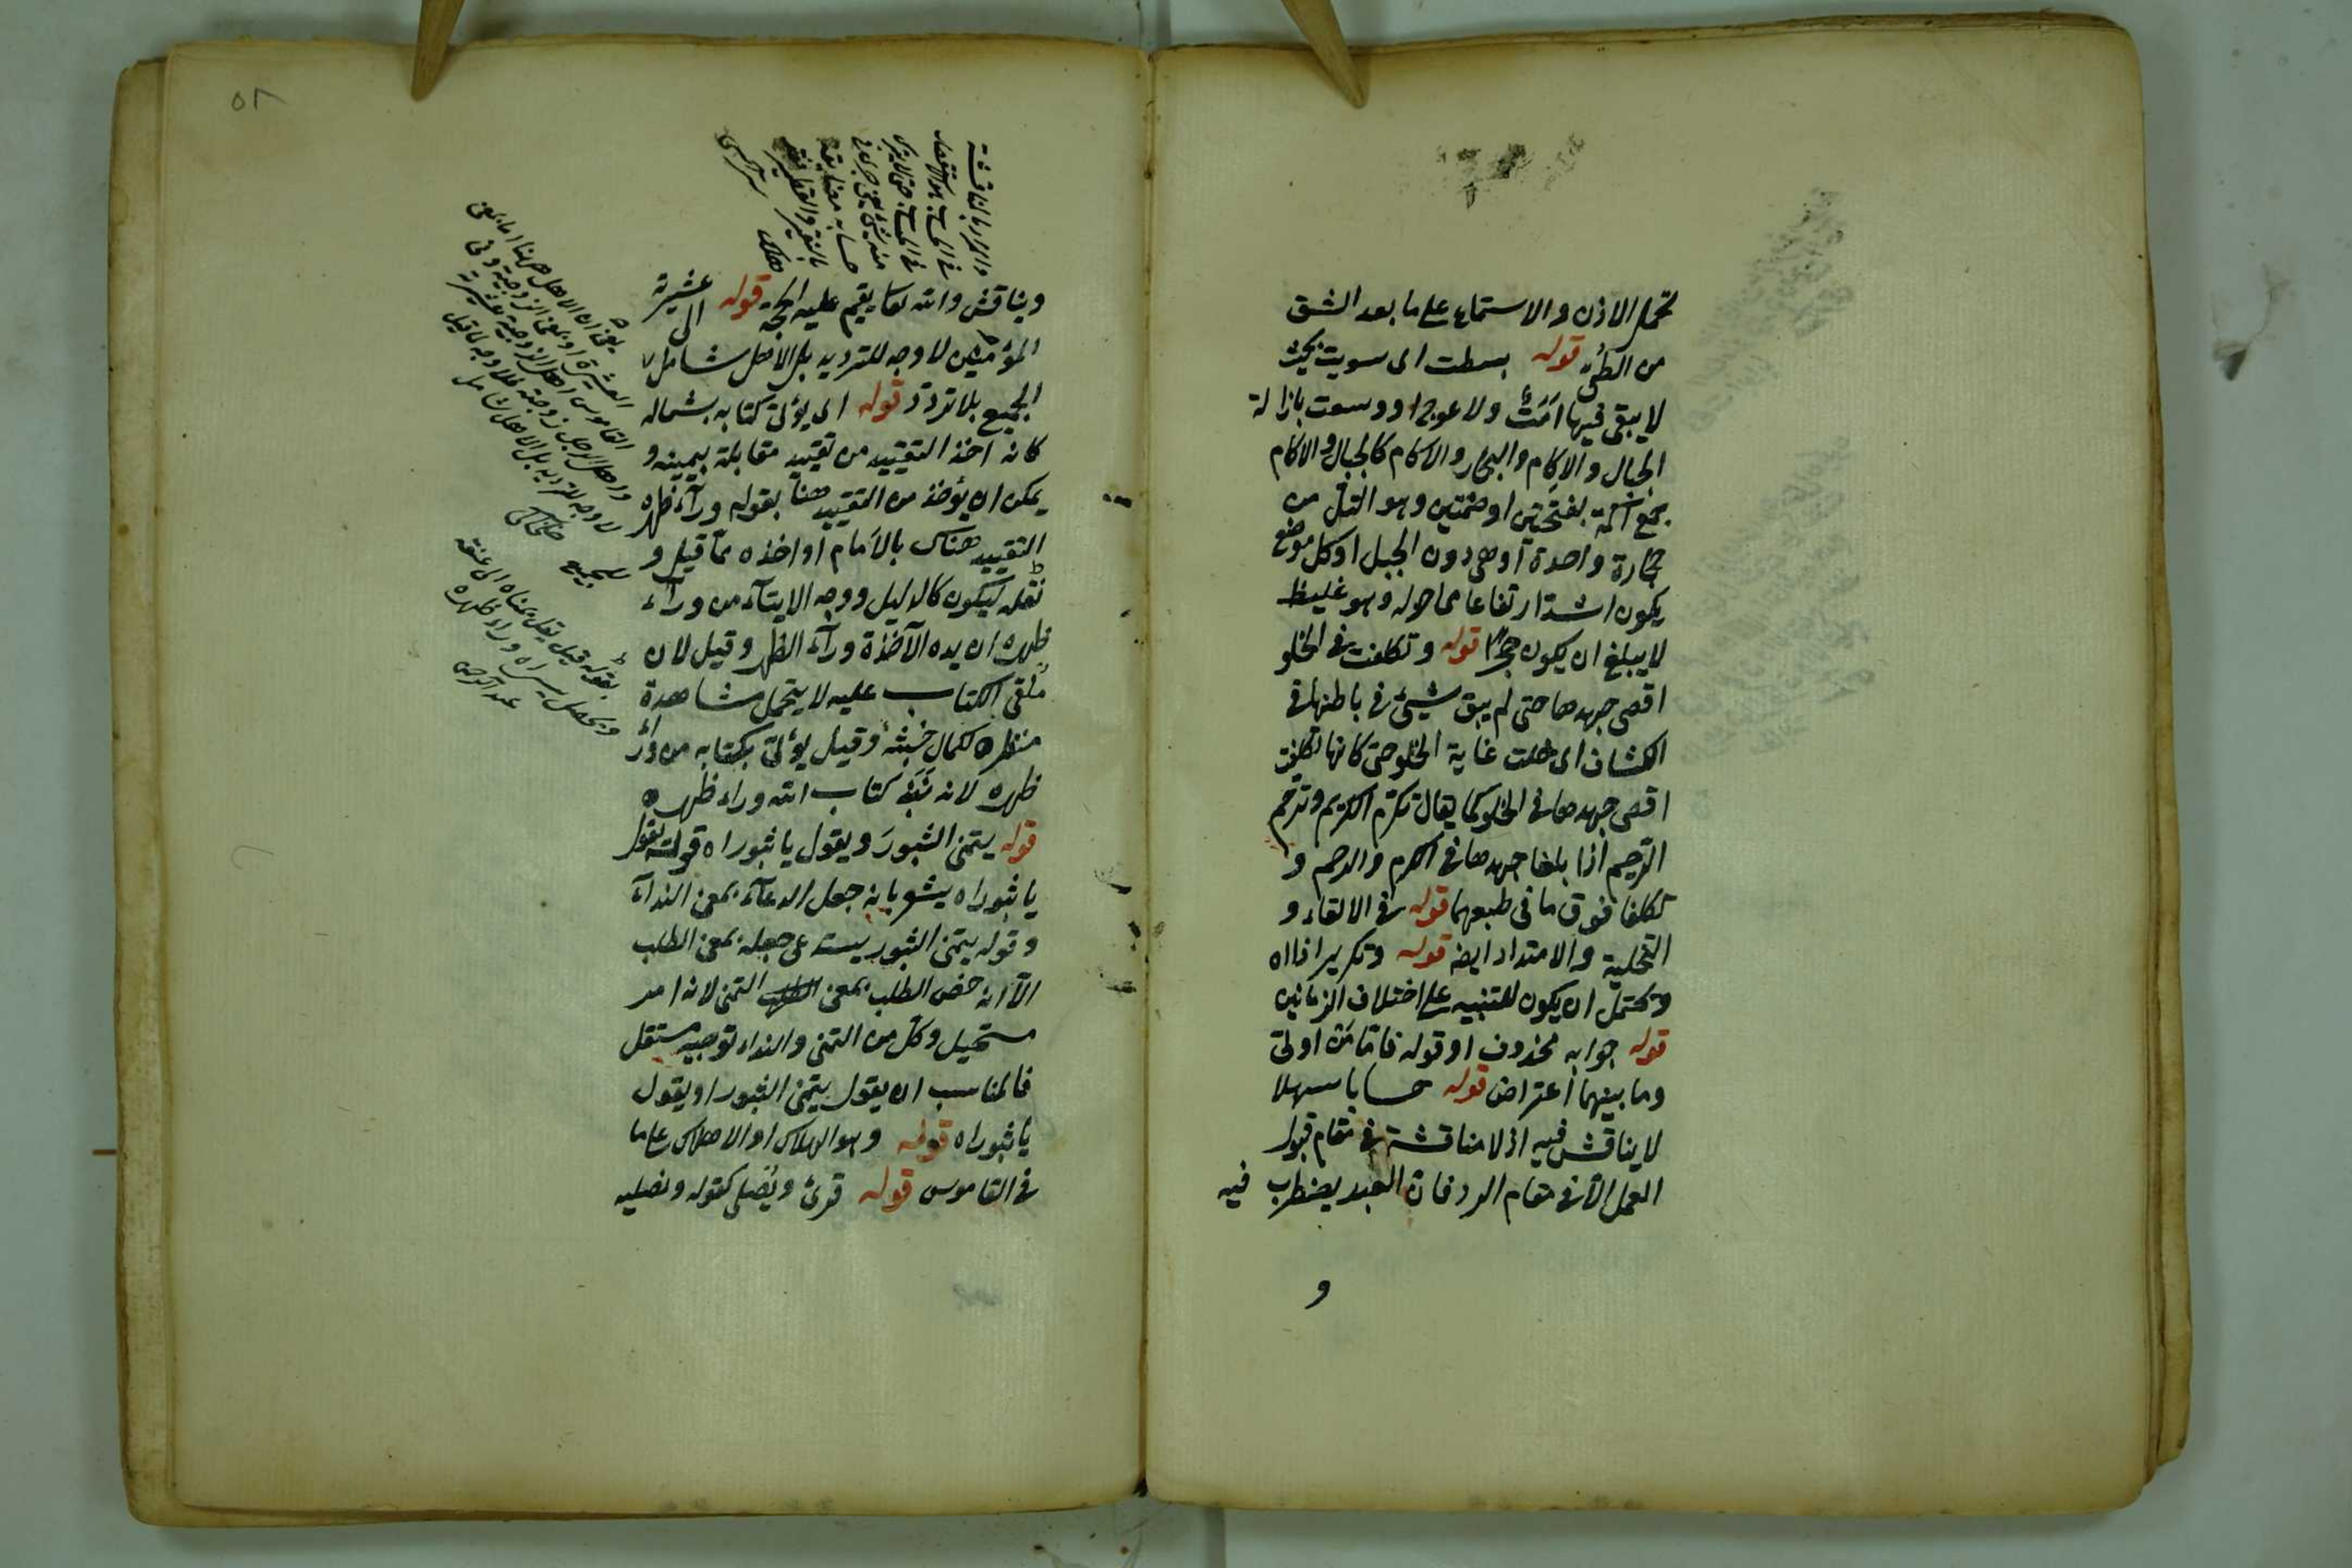 تحمل الاذن والاستماع على ما بعد الشق
من الطى قوله بسطت اى سويت بحيث
لا يبقى فيها امت ولا عوج او وسعت بازالة
الجبال والاكام والبحار والاكام كالجبال والاكام
جمع اكمة بفتحتين او ضمتين وهو التل من
حجارة واحدة او هى دون الجبل او كل موضع
يكون اشد ارتفاعا مما حوله وهو غليظ
لا يبلغ ان يكون حجرا قوله وتكلفت فى الخلو
اقصى جهدها حتى لم يبق شيئ فى باطنها فى
الكشاف اى خلت غاية الخلو حتى كانها تكلفت
اقصى جهدها فى الخلو كما يقال تكرم الكريم وترحم
الرحيم اذا بلغا جهدهما فى الكرم والرحم و
تكلفا فوق ما فى طبعهما قوله فى الالقاء و
التخلية والامتداد ايضا قوله وتكرير اذا اه
ويحتمل ان يكون للتنبيه على اختلاف الزمانين
قوله جوابه محذوف او قوله فاما من اوتى
وما بينهما اعتراض قوله حسابا سهلا
لا يناقش فيه اذ لا مناقشة فى مقام قبول
العمل الا فى مقام الرد فان العبد يضطرب فيه
و
٥٢
والمراد بالمناقشة
حسابه مضايقة
ويناقش والله تعا يقيم عليه الحجة قوله الى عشيرته
المؤمنين لا وجه للترديد بل الاهل شامل
الجميع بلا تردد قوله اى يؤتى كتابه بشماله
كانه اخذ التقييد من تقييد مقابله بيمينه و
يمكن ان يؤخذ من التقييد هنا بقوله وراء ظهره
التقييد هناك بالامام او اخذه مما قيل و
نقله ليكون كالدليل ووجه الايتاء من وراء
ظهره ان يده الآخذة وراء الظهر وقيل لان
ملقى الكتاب عليه لا يتحمل مشاهدة
منظره لكمال خبثه وقيل يؤتى بكتابه من وراء
ظهره لانه نبذ كتاب الله وراء ظهره
قوله يتمنى الثبور ويقول يا ثبوراه قوله يقول
يا ثبوراه يشعر بانه جعل الدعاء بمعنى النداء
وقوله يتمنى الثبور يستدعى جعله بمعنى الطلب
الا انه خص الطلب بمعنى التمنى لانه امر
مستحيل وكل من التمنى والنداء توجيه مستقل
فالمناسب ان يقول يتمنى الثبور او يقول
يا ثبوراه قوله وهو الهلاك او الاهلاك على ما
فى القاموس قوله قرئ ويُصلى كقوله وتصلية
يعنى ان الاهل ههنا اما بمعنى
العشيرة او بمعنى الزوجية وفى
القاموس اهل الرجل عشيرته
لا وجه للترديد بل الاهل شامل
للجميع
بقوله قيل تغل يمناه الى عنقه
ويجعل يسراه وراء ظهره